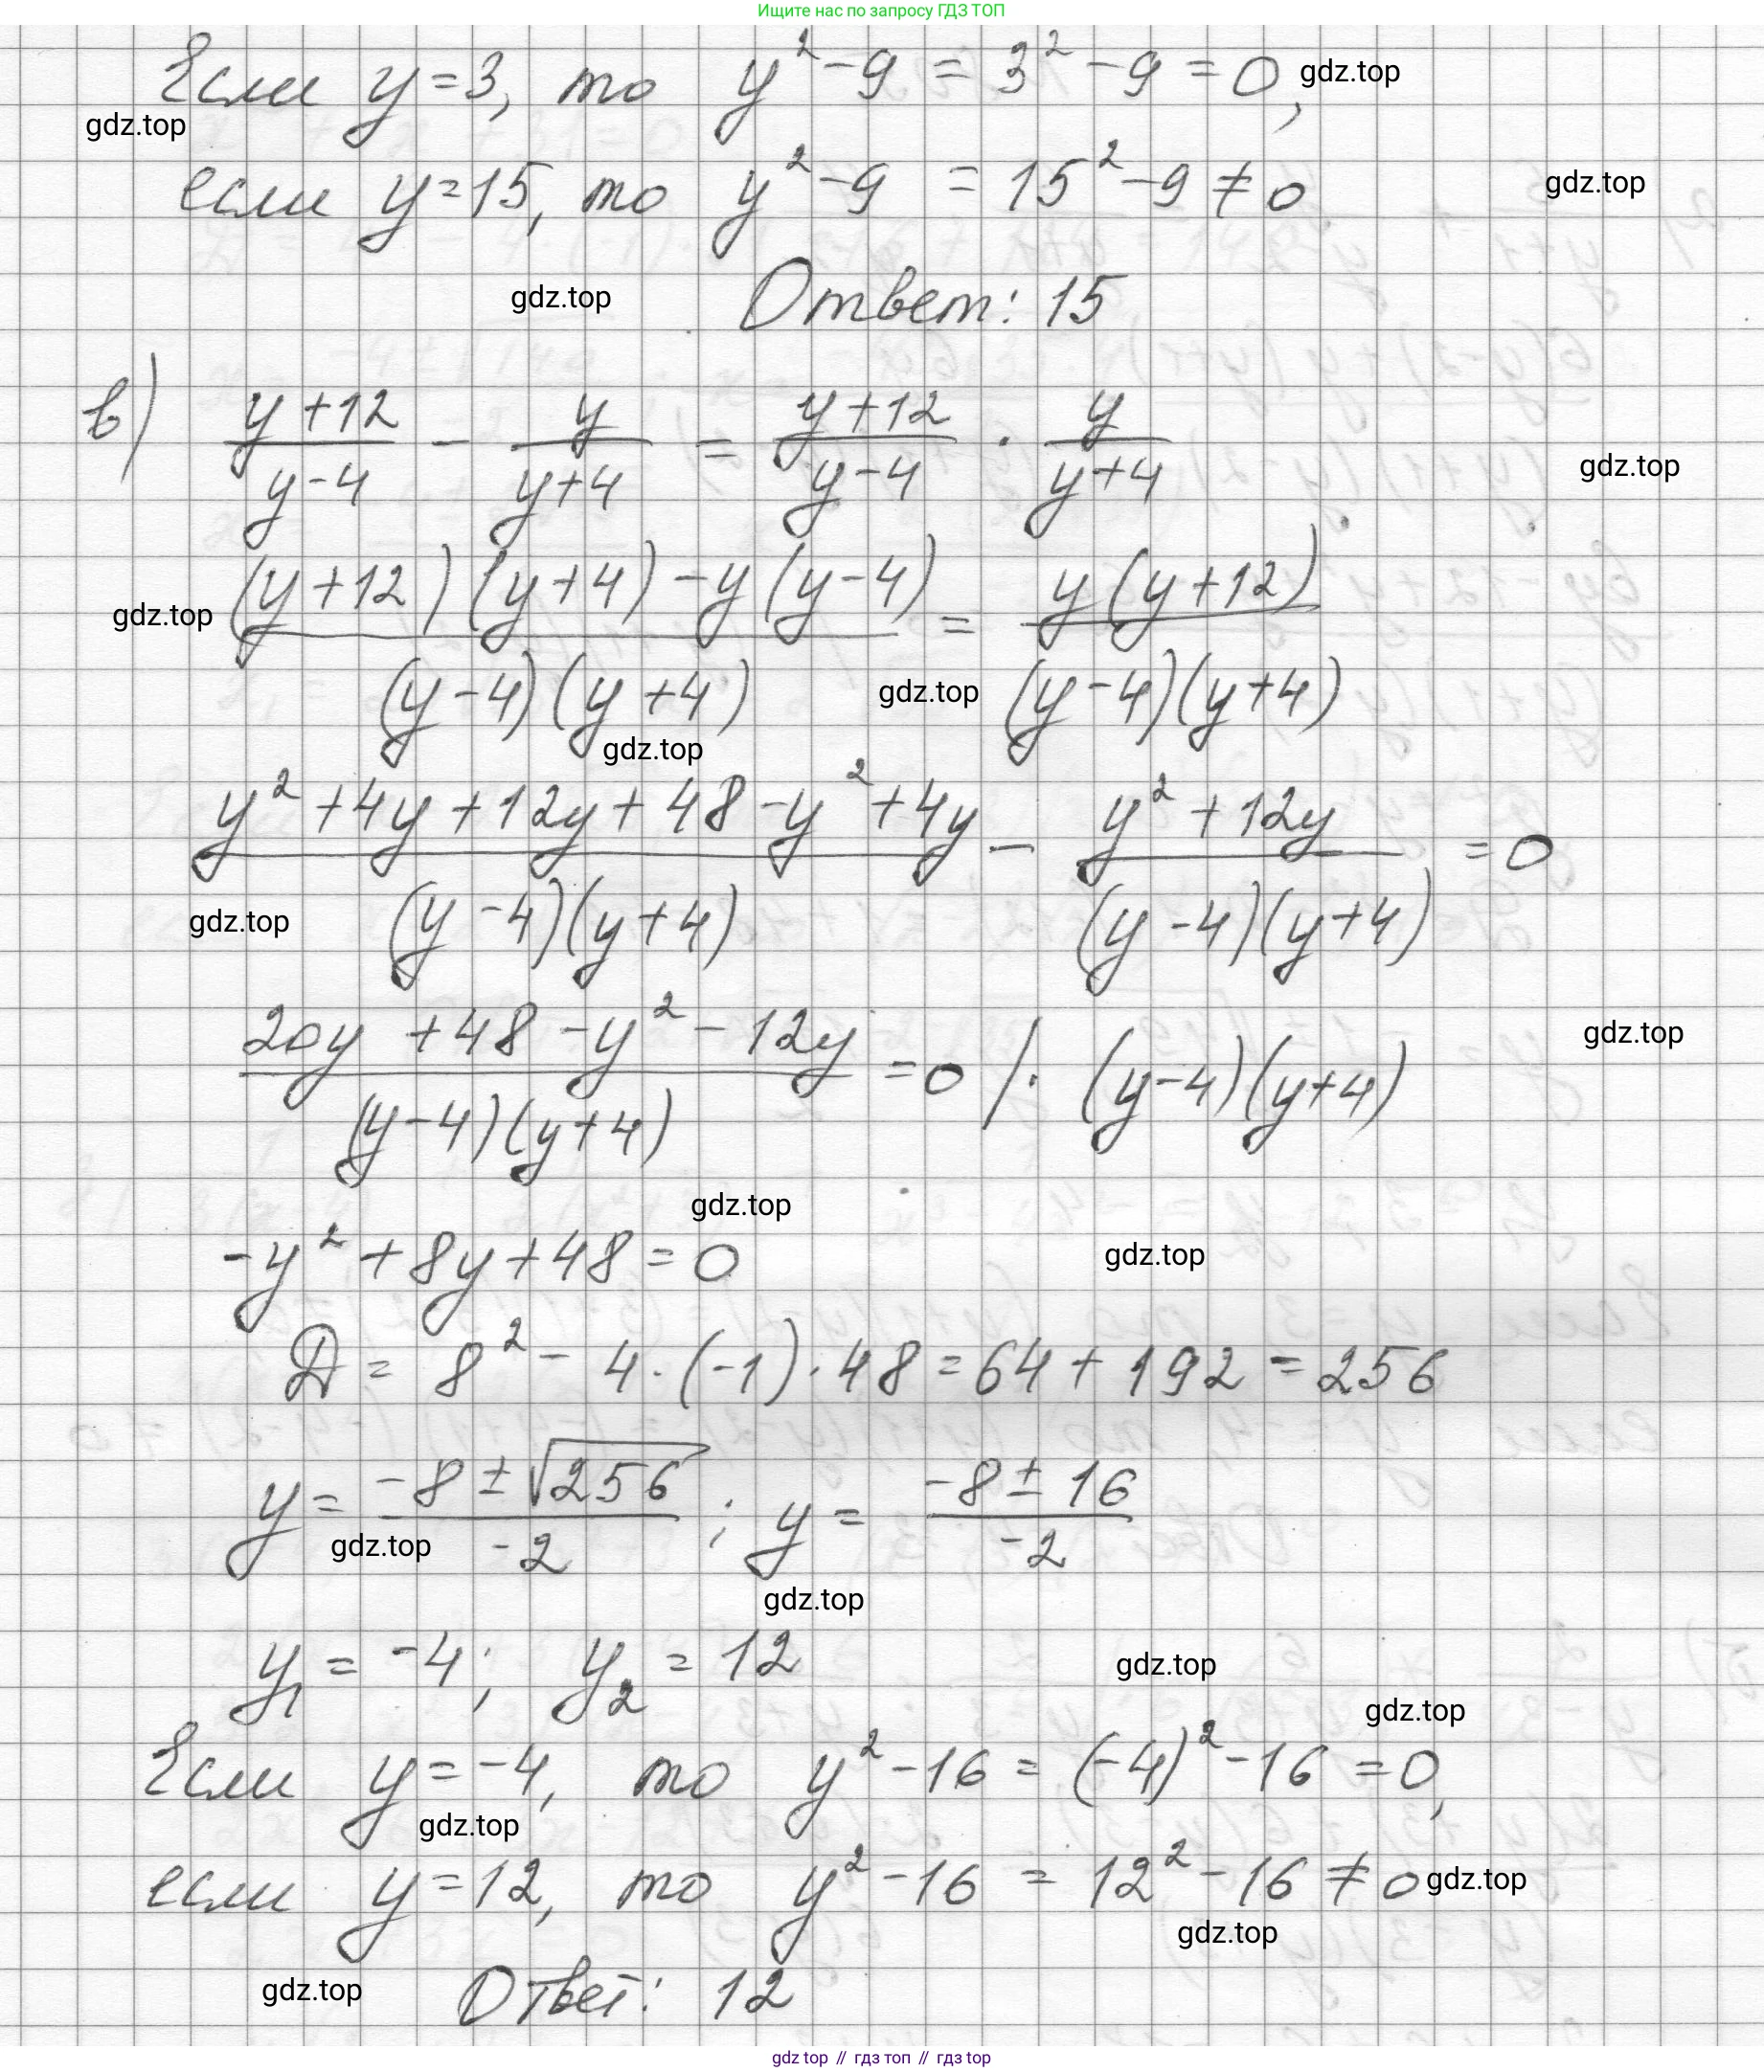 Ищите нас по запросу ГДЗ ТОП
Если y=3, то y²-9 = 3²-9 = 0, gdz.top
gdz.top
если y=15, то y²-9 = 15²-9 ≠ 0 gdz.top
gdz.top Ответ: 15
в) (y+12)/(y-4) - y/(y+4) = (y+12)/(y-4) · y/(y+4) gdz.top
gdz.top ((y+12)(y+4)-y(y-4))/((y-4)(y+4)) = (y(y+12))/((y-4)(y+4))
gdz.top
gdz.top
(y²+4y+12y+48-y²+4y)/((y-4)(y+4)) - (y²+12y)/((y-4)(y+4)) = 0
gdz.top
(20y+48-y²-12y)/((y-4)(y+4)) = 0 /· (y-4)(y+4) gdz.top
gdz.top
-y²+8y+48=0 gdz.top
Д = 8² - 4·(-1)·48 = 64 + 192 = 256
y = (-8±√256)/(-2); y = (-8±16)/(-2)
gdz.top
gdz.top
y₁ = -4; y₂ = 12 gdz.top
gdz.top
Если y=-4, то y²-16 = (-4)²-16 = 0,
gdz.top
если y=12, то y²-16 = 12²-16 ≠ 0 gdz.top
gdz.top
gdz.top Ответ: 12
gdz top // гдз топ // гдз top